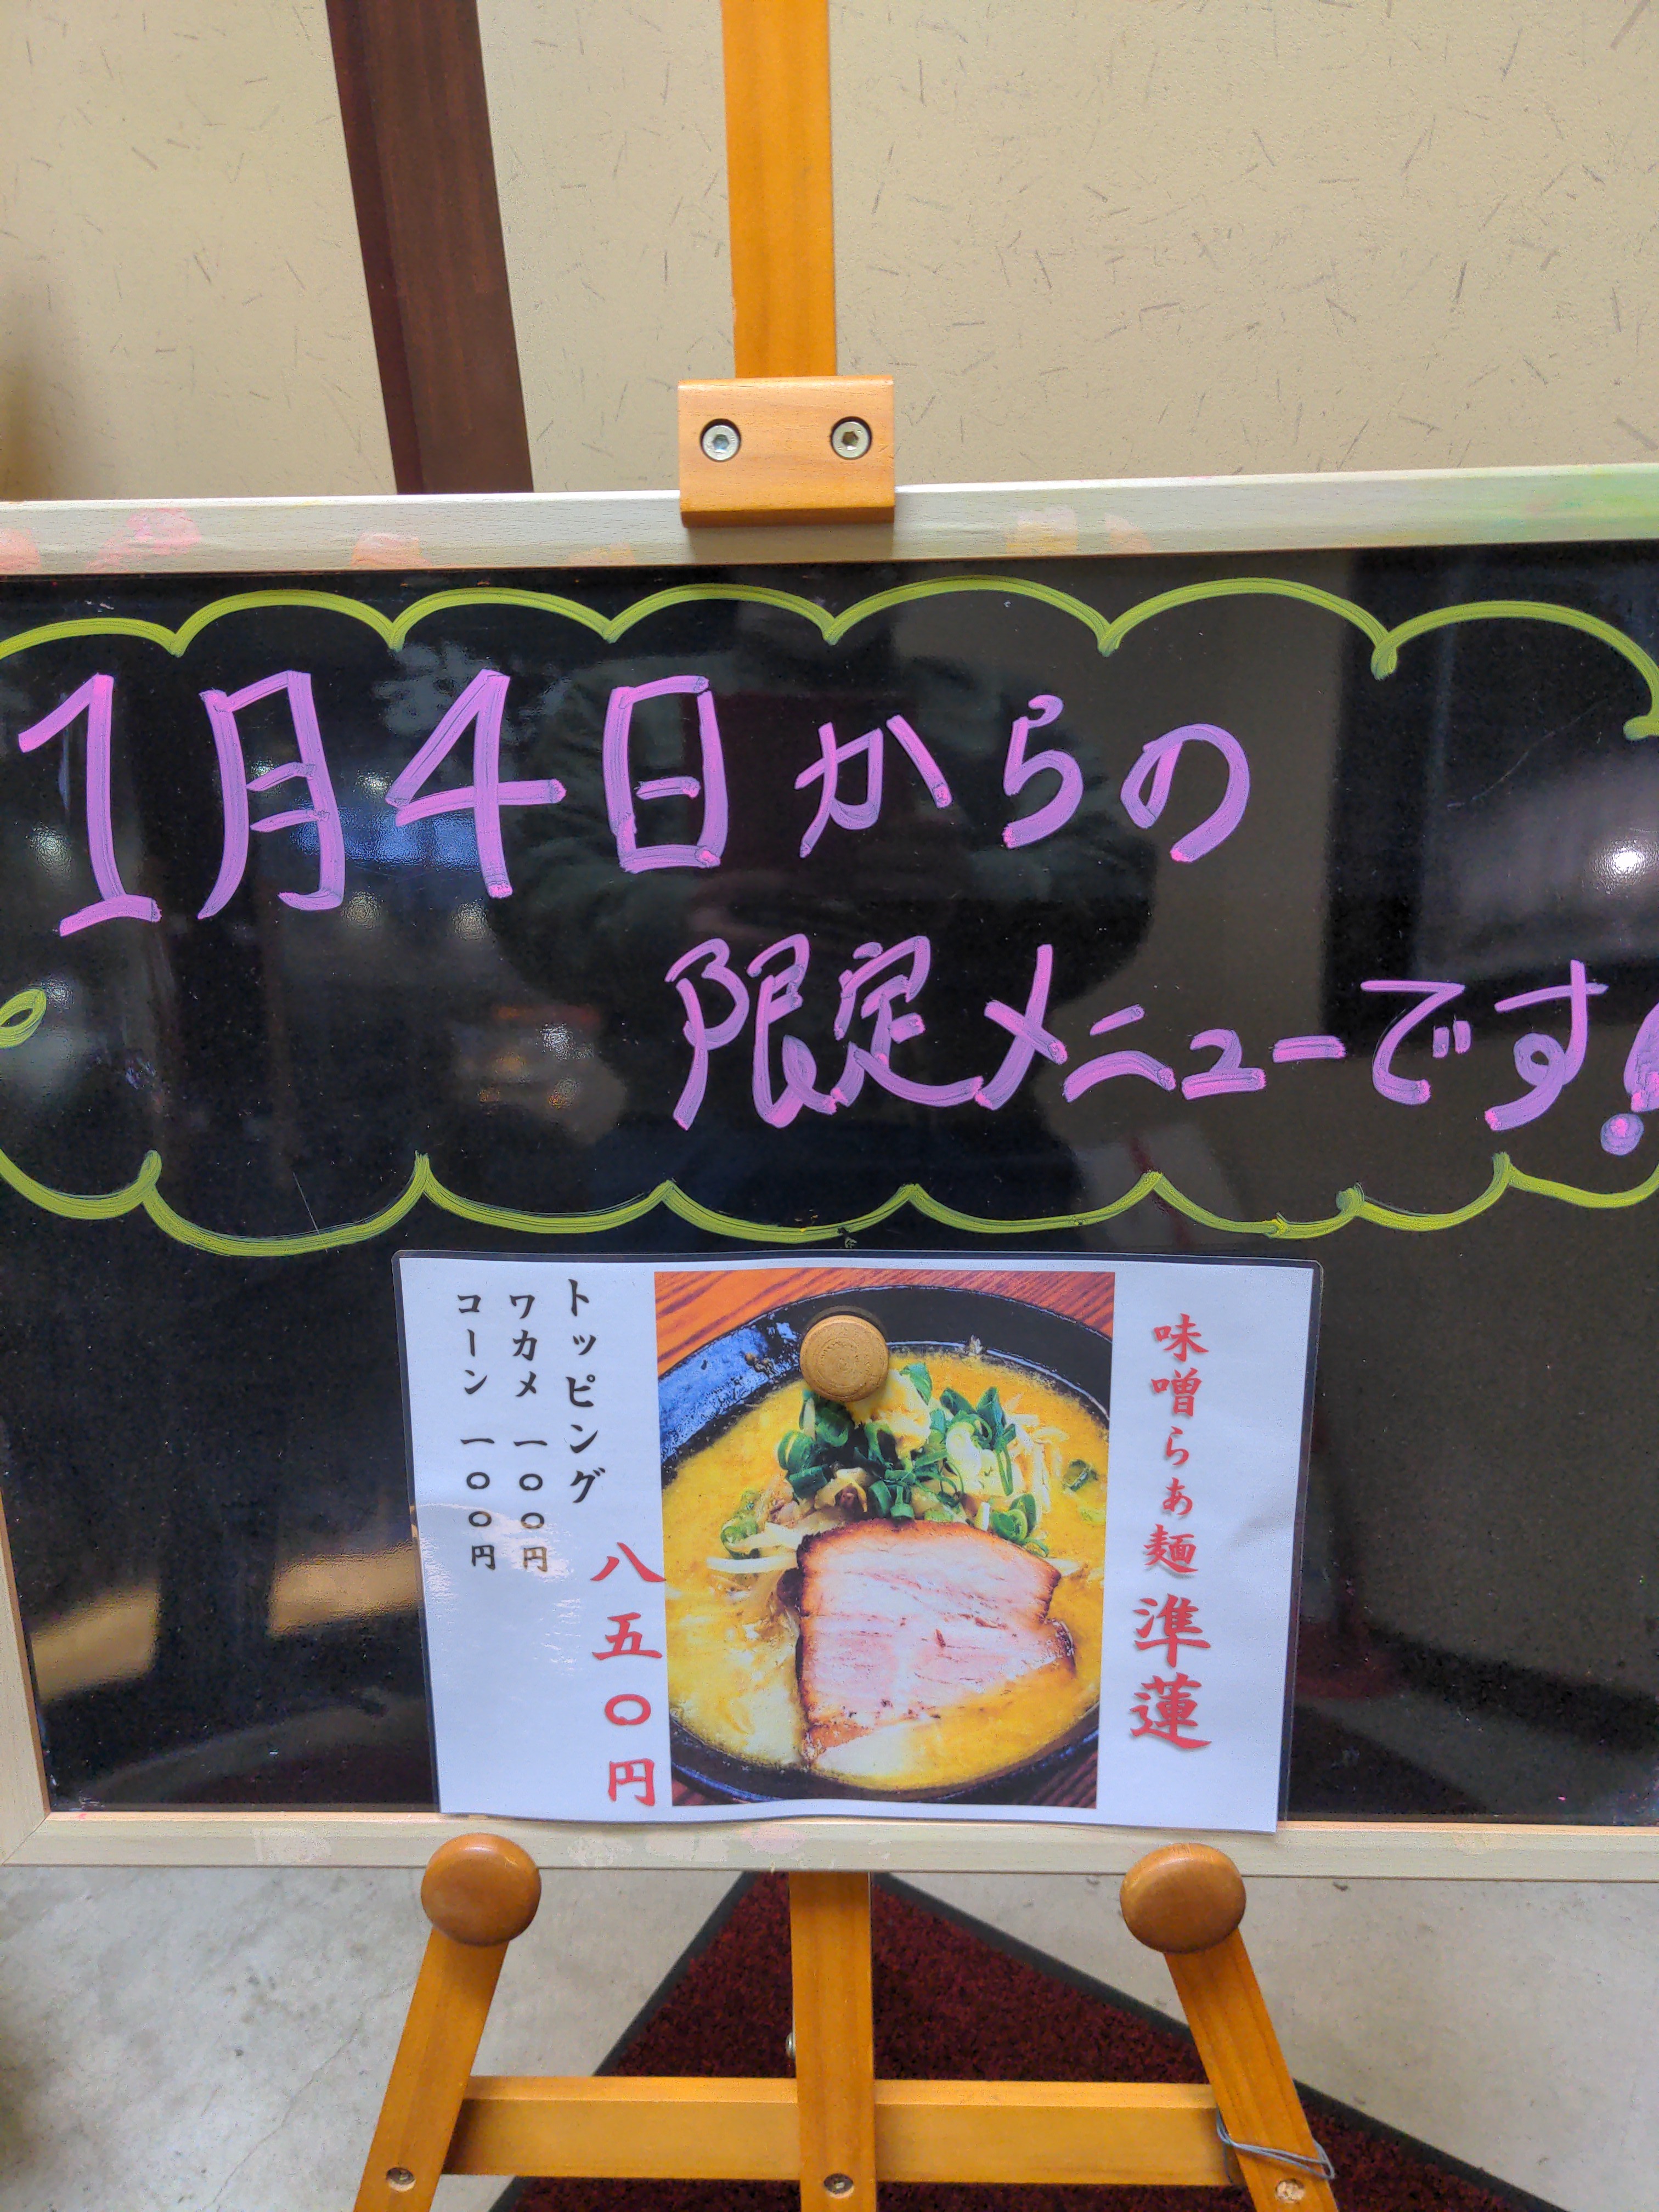 1月4日からの
限定メニューです!
味噌らぁ麺 準蓮
八五〇円
トッピング
ワカメ 一〇〇円
コーン 一〇〇円